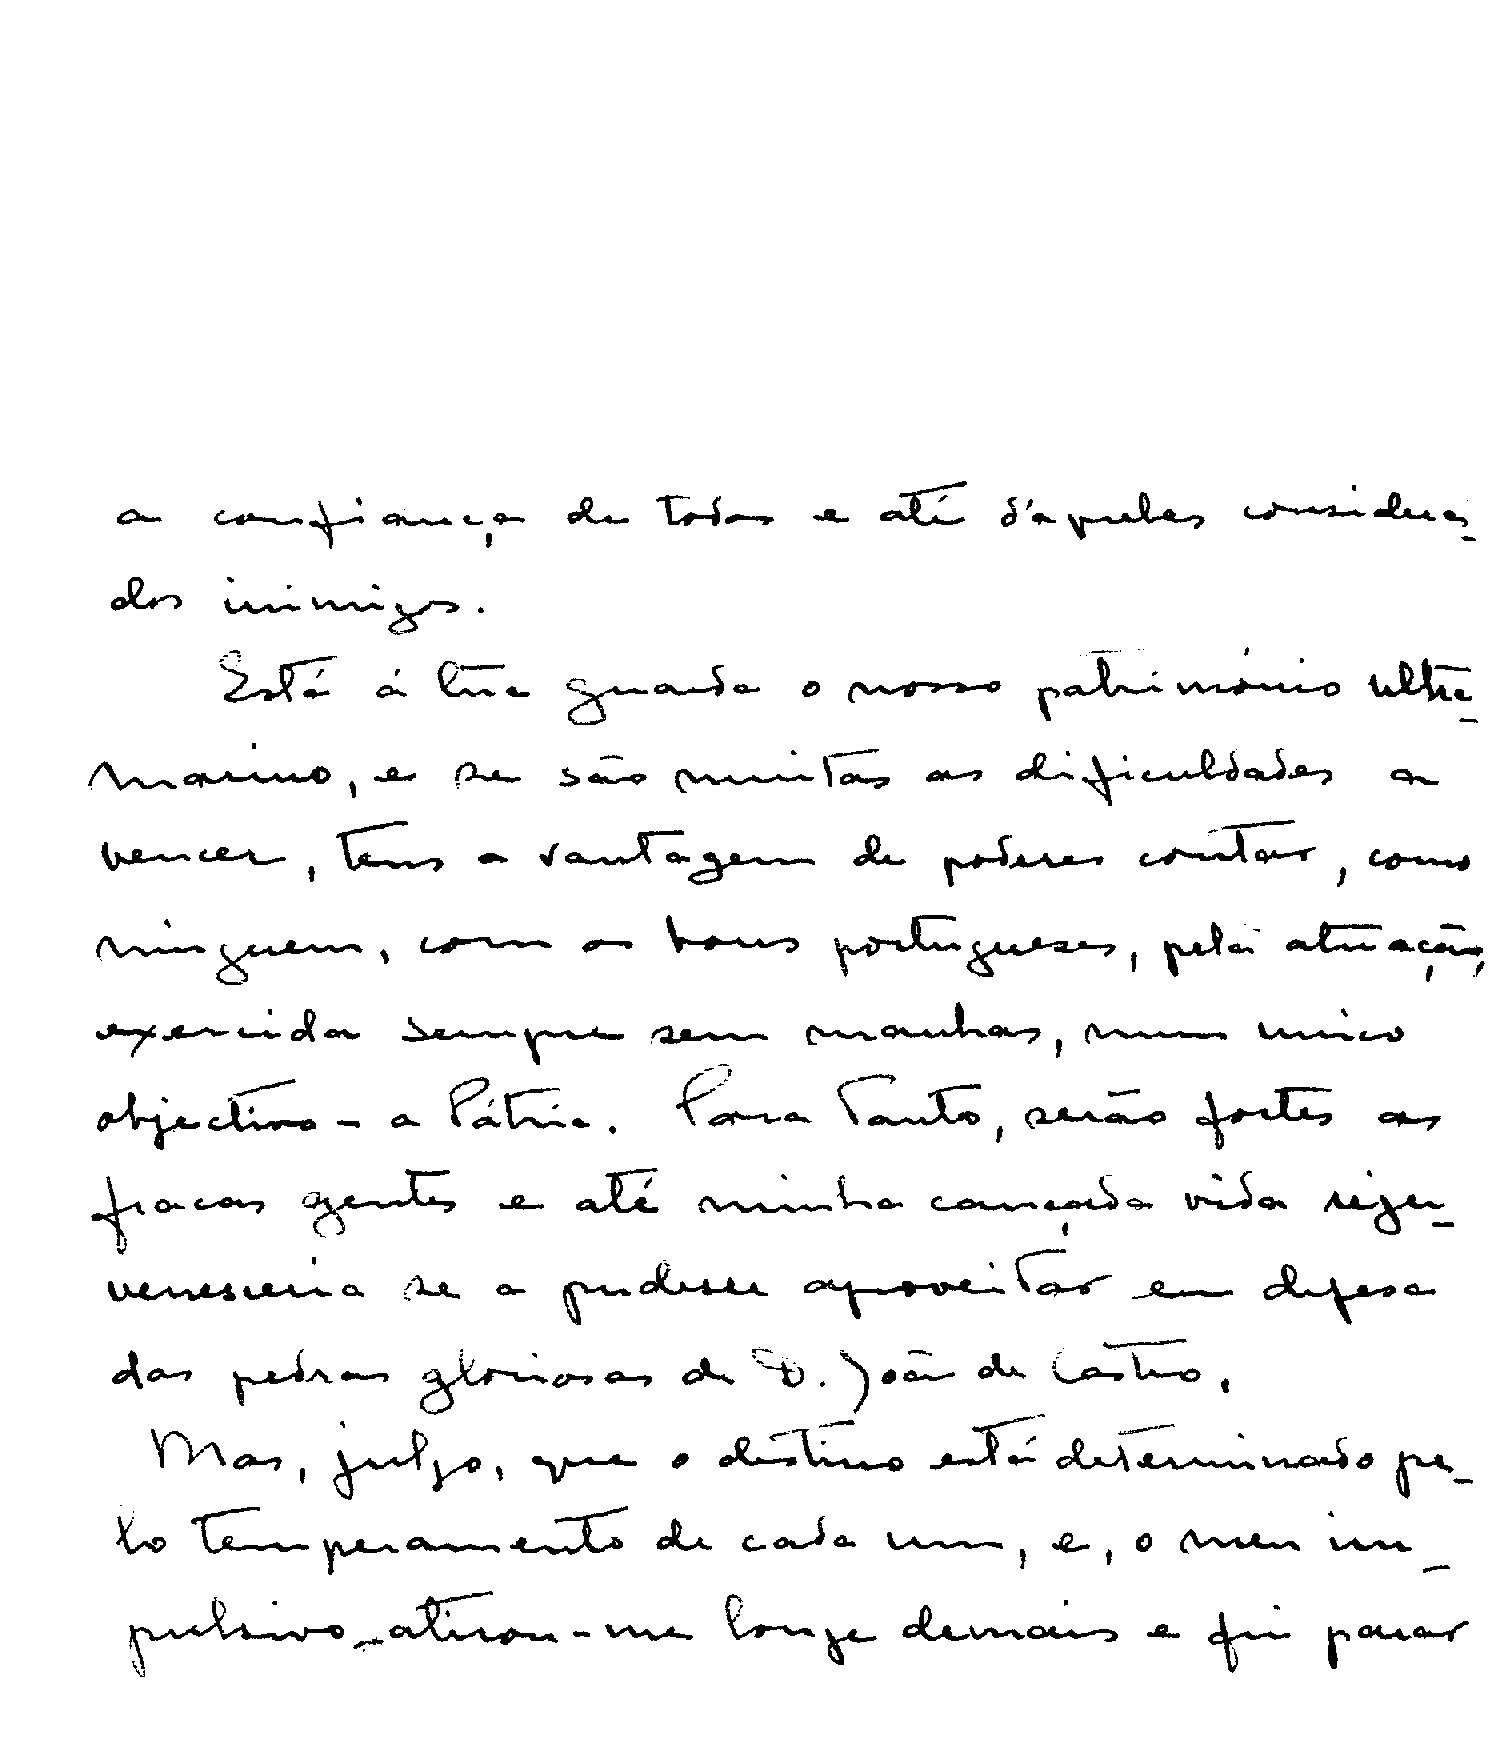 a confiança de todos e até d'aqueles considera-
dos inimigos.
Está á tua guarda o nosso património ultra-
marino, e se são muitas as dificuldades a
vencer, tens a vantagem de poderes contar, como
ninguem, com os bons portugueses, pela atuação,
exercida sempre sem manhas, num unico
objectivo - a Pátria. Para tanto, serão fortes as
fracas gentes e até minha cançada vida reju-
venesceria se a pudesse aproveitar em defesa
das pedras gloriosas de D. João de Castro.
Mas, julgo, que o destino está determinado pe-
lo temperamento de cada um, e, o meu im-
pulsivo - atirou-me longe demais e fui parar